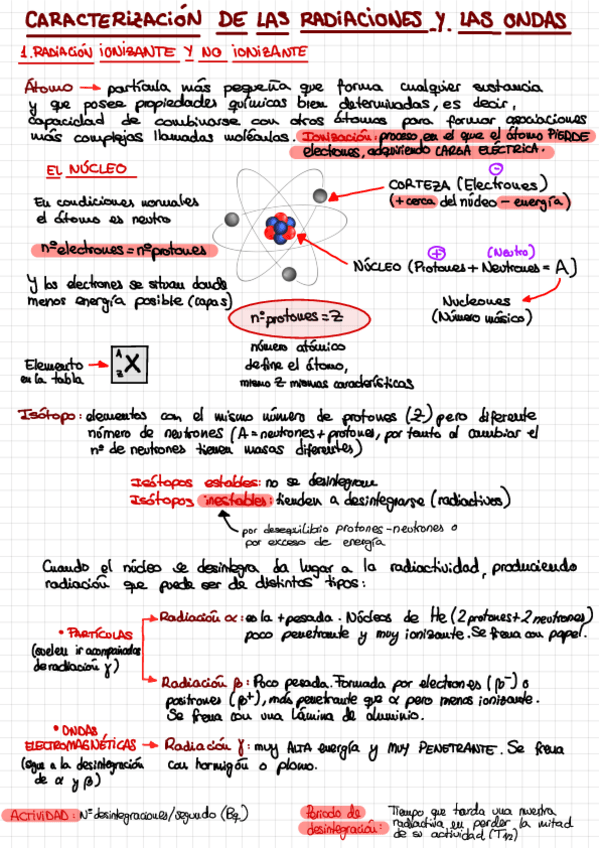 CARACTERIZACIÓN DE LAS RADIACIONES Y LAS ONDAS
1. RADIACIÓN IONIZANTE Y NO IONIZANTE
Átomo → partícula más pequeña que forma cualquier sustancia
y que posee propiedades químicas bien determinadas, es decir,
capacidad de combinarse con otros átomos para formar asociaciones
más complejas llamadas moléculas. Ionización: proceso, en el que el átomo PIERDE
electrones, adquiriendo CARGA ELÉCTRICA.
EL NÚCLEO
En condiciones normales
el átomo es neutro
nº electrones = nº protones
Y los electrones se sitúan donde
menos energía posible (capas)
⊖
CORTEZA (Electrones)
(+ cerca del núcleo − energía)
⊕ (Neutro)
NÚCLEO (Protones + Neutrones = A)
Nucleones
(Número másico)
nº protones = Z
número atómico
define el átomo,
mismo Z mismas características
Elemento →
en la tabla
A
Z X
Isótopo: elementos con el mismo número de protones (Z) pero diferente
número de neutrones (A = neutrones + protones, por tanto al cambiar el
nº de neutrones tienen masas diferentes)
Isótopos estables: no se desintegran
Isótopos inestables: tienden a desintegrarse (radiactivos)
por desequilibrio protones-neutrones o
por exceso de energía
Cuando el núcleo se desintegra da lugar a la radiactividad, produciendo
radiación que puede ser de distintos tipos:
• PARTÍCULAS
(suelen ir acompañadas
de radiación γ)
Radiación α: es la + pesada. Núcleos de He (2 protones + 2 neutrones)
poco penetrante y muy ionizante. Se frena con papel.
Radiación β: Poco pesada. Formada por electrones (β⁻) o
positrones (β⁺), más penetrante que α pero menos ionizante.
Se frena con una lámina de aluminio.
• ONDAS
ELECTROMAGNÉTICAS →
(sigue a la desintegración
de α y β)
Radiación γ: muy ALTA energía y MUY PENETRANTE. Se frena
con hormigón o plomo.
ACTIVIDAD: Nº desintegraciones/segundo (Bq)
Periodo de
desintegración:
Tiempo que tarda una muestra
radiactiva en perder la mitad
de su actividad (T½)